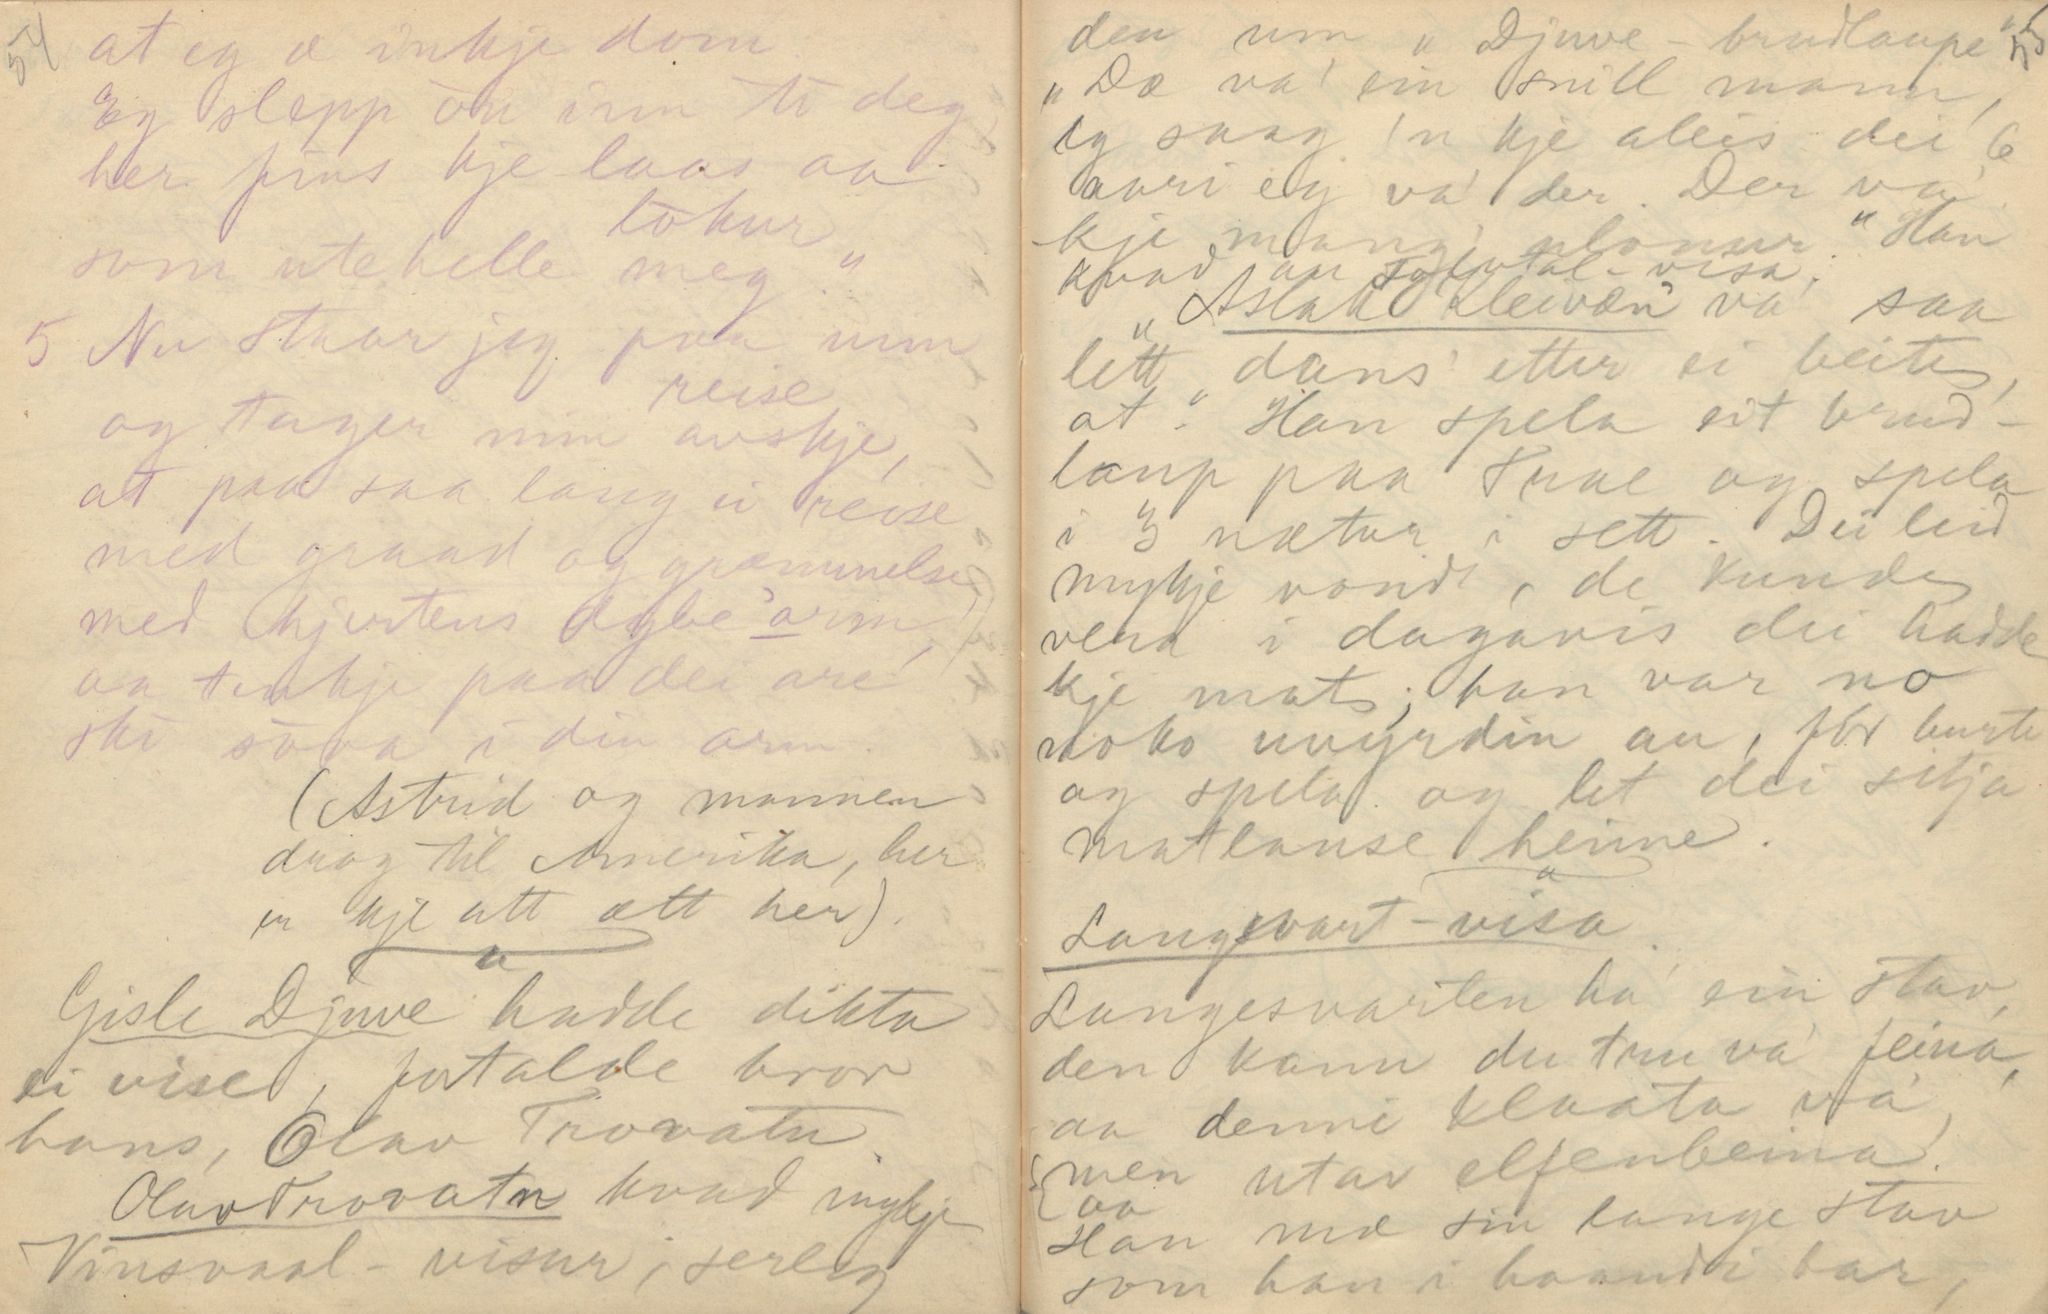 54
at eg æ inkje dom.
Eg slepp òu inn ti deg,
her fins kje laas aa
lokur
som utehelle meg."
5 Nu staar jeg paa min
reise
og tager min avskje,
at paa saa lang ei reise
med graad og græmmelse,
med hjertens dybe arm,
aa tenkje paa dei are
ski sova i din arm.
(Astrid og mannen
drog til Amerika, her
er kje ætt ætt her).
Gisle Djuve hadde dikta
ei vise, fortalde bror
hans, Olav Trovatn
Olav Trovatn kvad mykje
Vinsvaal-visur, serleg
55
den um "Djuve-brudlaupe"
"Dæ va' ein snill mann,
eg saag 'n kje aleis dei 6
aari eg va' der. Der va'
kje mang' slonur." Han
kvad au -visa.
"Aslak Kleivæn va' saa
lett dans' etter ei beite,
at." Han spela eit brud-
laup paa Trae og spela
i 3 nætur i sett. Dei leid
mykje vondt, de kunde
vera i dagavis dei hadde
kje mat; han var no
noko uvyrdin au, for burt
og spela og let dei sitja
matlause heime.
Langsvart-visa.
Langesvarten ha' ein stav,
den kann du tru va' feina,
aa denni klaata va',
men utav elfenbeina.
aa
Han mæ sin lange stav
som han i haandi bar,